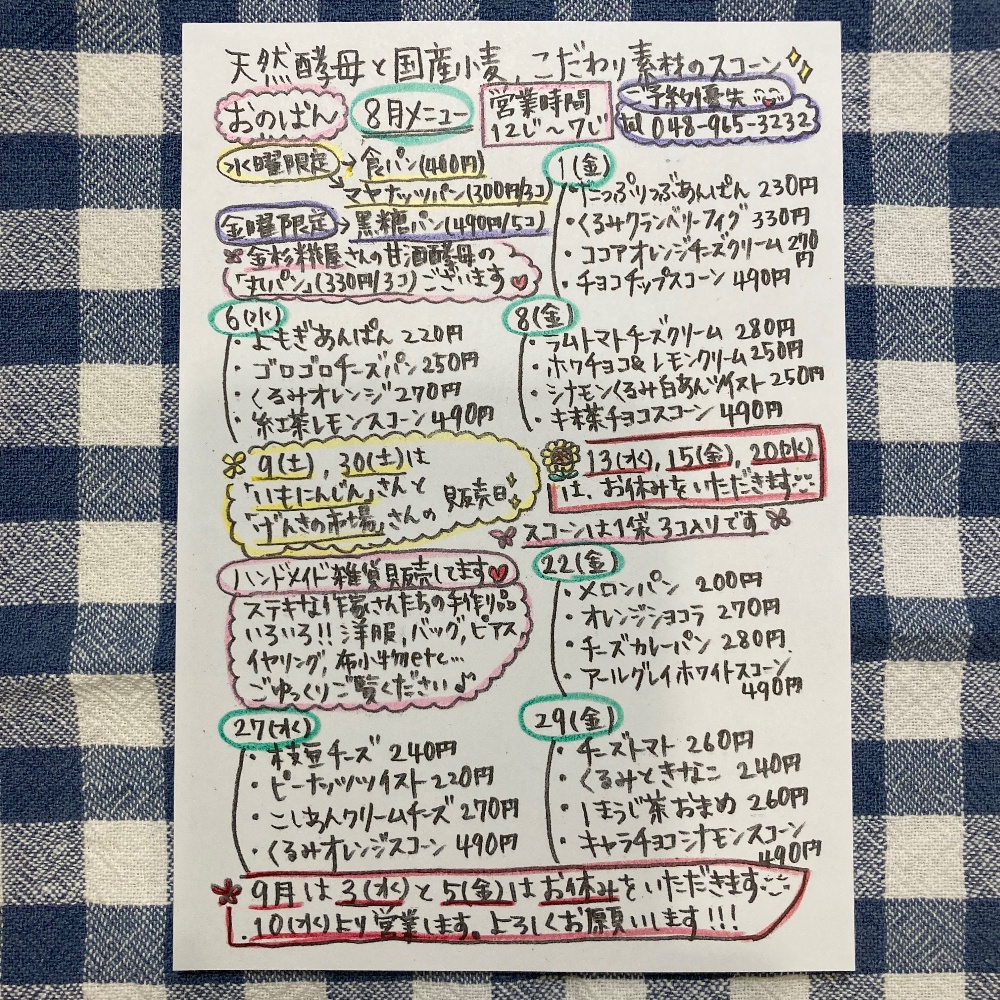 天然酵母と国産小麦、こだわり素材のスコーン
おのぱん
8月メニュー
営業時間
12じ～7じ
ご予約優先
tel 048-965-3232
水曜限定→食パン(460円)
マヤナッツパン(300円/3コ)
金曜限定→黒糖パン(490円/5コ)
金杉糀屋さんの甘酒酵母の
「丸パン」(330円/3コ)ございます
1(金)
・たっぷりつぶあんぱん 230円
・くるみクランベリーフィグ 330円
・ココアオレンジチーズクリーム 270円
・チョコチップスコーン 490円
6(水)
・よもぎあんぱん 220円
・ゴロゴロチーズパン 250円
・くるみオレンジ 270円
・紅茶レモンスコーン 490円
8(金)
・ラムトマトチーズクリーム 280円
・ホワチョコ&レモンクリーム 250円
・シナモンくるみ白あんツイスト 250円
・抹茶チョコスコーン 490円
9(土), 30(土)は
「いもにんじん」さんと
「げんきの市場」さんの
販売日
13(水), 15(金), 20(水)
は、お休みをいただきます
スコーンは1袋3コ入りです
ハンドメイド雑貨販売してます
ステキな作家さんたちの手作り品
いろいろ!! 洋服, バッグ, ピアス,
イヤリング, 布小物etc…
ごゆっくりご覧ください♪
22(金)
・メロンパン 200円
・オレンジショコラ 270円
・チーズカレーパン 280円
・アールグレイホワイトスコーン
490円
27(水)
・枝豆チーズ 240円
・ピーナッツツイスト 220円
・こしあんクリームチーズ 270円
・くるみオレンジスコーン 490円
29(金)
・チーズトマト 260円
・くるみときなこ 240円
・ほうじ茶おまめ 260円
・キャラチョコシナモンスコーン
490円
9月は3(水)と5(金)はお休みをいただきます
10(水)より営業します。よろしくお願いします!!!